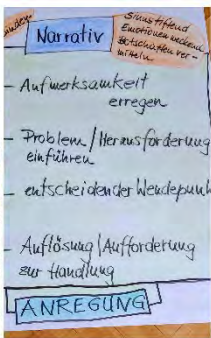 Narrativ
Sinnstiftend
Emotionen weckend
Botschaften ver-
mitteln
- Aufmerksamkeit
erregen
- Problem/Herausforderung
einführen
- entscheidender Wendepunkt
- Auflösung/Aufforderung
zur Handlung
ANREGUNG